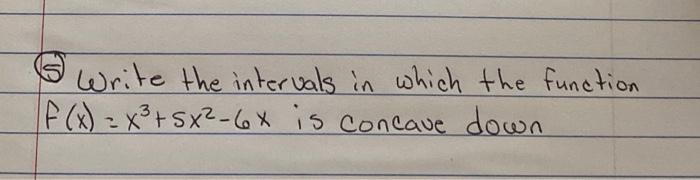 ⑤ Write the intervals in which the function
f(x) = x³+5x²-6x is concave down